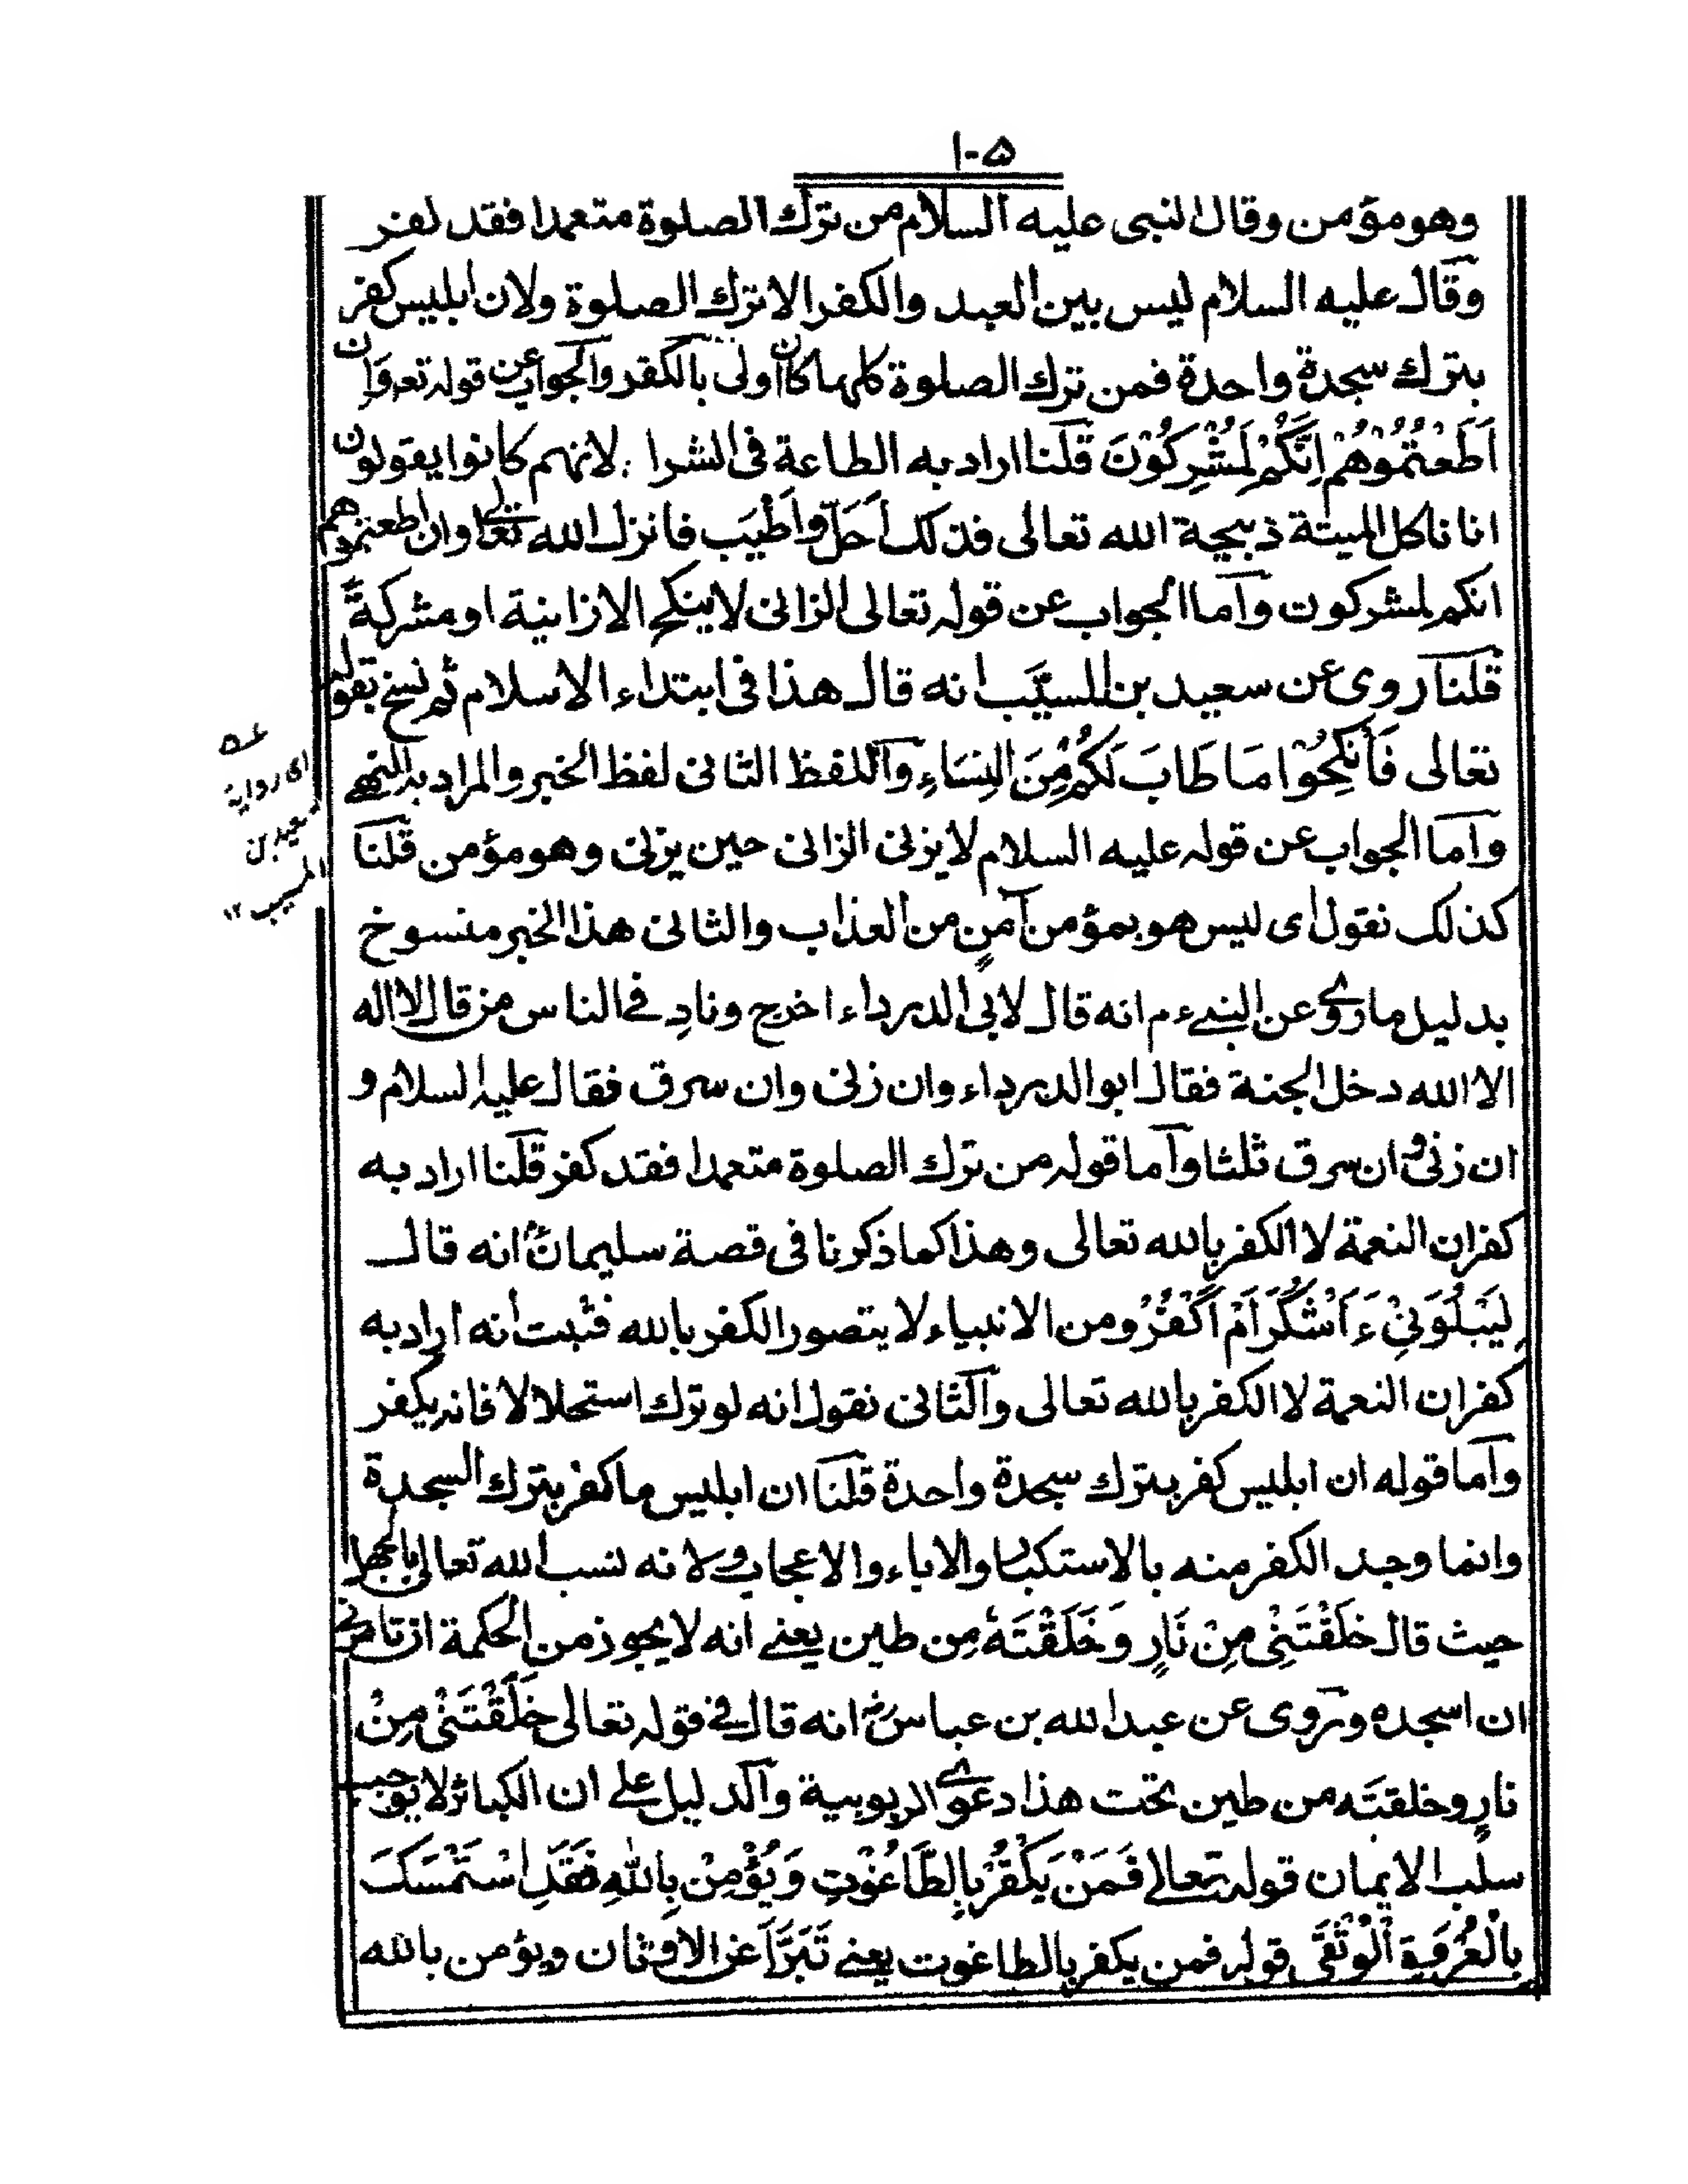 ١٠٥
وهو مؤمن وقال النبى عليه السلام من ترك الصلوة متعمدا فقد كفر
وقال عليه السلام ليس بين العبد والكفر الا ترك الصلوة ولان ابليس كفر
بترك سجدة واحدة فمن ترك الصلوة كلهما كان اولى بالكفر والجواب عن قوله تعم وان
اَطَعْتُمُوْهُمْ اِنَّكُمْ لَمُشْرِكُوْنَ قلنا اراد به الطاعة فى الشرا لانهم كانوا يقولون
انا ناكل الميتة ذبيحة الله تعالى فذلك اَحَلّ واَطْيَب فانزل الله تعالى وان اطعتموهم
انكم لمشركون واما الجواب عن قوله تعالى الزانى لا ينكح الا زانية او مشركةً
قلنا روى عن سعيد بن المسيَّب انه قال هذا فى ابتداء الاسلام ثم نسخ بقوله
تعالى فَانْكِحُوْا مَا طَابَ لَكُمْ مِّنَ النِّسَاءِ واللفظ الثانى لفظ الخبر والمراد به النهى
واما الجواب عن قوله عليه السلام لا يزنى الزانى حين يزنى وهو مؤمن قلنا
كذلك نقول اى ليس هو بمؤمن آمنٍ من العذاب والثانى هذا الخبر منسوخ
بدليل ما روى عن النبى ءم انه قال لابى الدرداء اخرج ونادِ فى الناس من قال لا اله
الا الله دخل الجنة فقال ابو الدرداء وان زنى وان سرق فقال عليه السلام و
ان زنى وان سرق ثلثا واما قوله من ترك الصلوة متعمدا فقد كفر قلنا اراد به
كفران النعمة لا الكفر بالله تعالى وهذا كما ذكرنا فى قصة سليمان انه قال
لِيَبْلُوَنِىْ ءَاَشْكُرُ اَمْ اَكْفُرُ ومن الانبياء لا يتصور الكفر بالله فثبت أنه اراد به
كفران النعمة لا الكفر بالله تعالى والثانى نقول انه لو ترك استحلالا فانه يكفر
واما قوله ان ابليس كفر بترك سجدة واحدة قلنا ان ابليس ما كفر بترك السجدة
وانما وجد الكفر منه بالاستكبار والاباء والاعجاب ولانه نسب الله تعالى
حيث قال خَلَقْتَنِىْ مِنْ نَارٍ وَخَلَقْتَهٗ مِن طين يعنى انه لا يجوز من الحكمة ان تامرنى
ان اسجده ويروى عن عبد الله بن عباس رض انه قال فى قوله تعالى خَلَقْتَنِىْ مِنْ
نارٍ وخلقتَه من طين تحت هذا دعوى الربوبية والدليل على ان الكبائر لا يوجب
سلب الايمان قوله تعالى فَمَنْ يَكْفُرْ بِالطَّاغُوْتِ وَيُؤْمِنْ بِاللّٰهِ فَقَدِ اسْتَمْسَكَ
بِالْعُرْوَةِ الْوُثْقٰى قوله فمن يكفر بالطاغوت يعنى تَبَرَّاَ عن الاوثان ويؤمن بالله
اى رواية
سعيد بن
المسيب ١٢